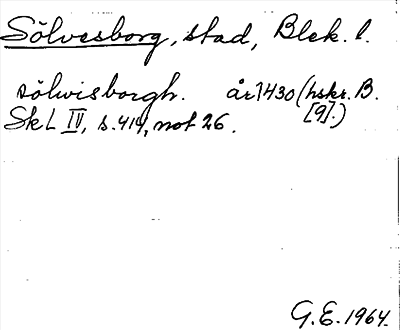 Sölvesborg, stad, Blek. l.
sölwisborgh. år 1430 (hskr. B. [9].)
SkL IV, s. 414, not 26.
G.E. 1964.